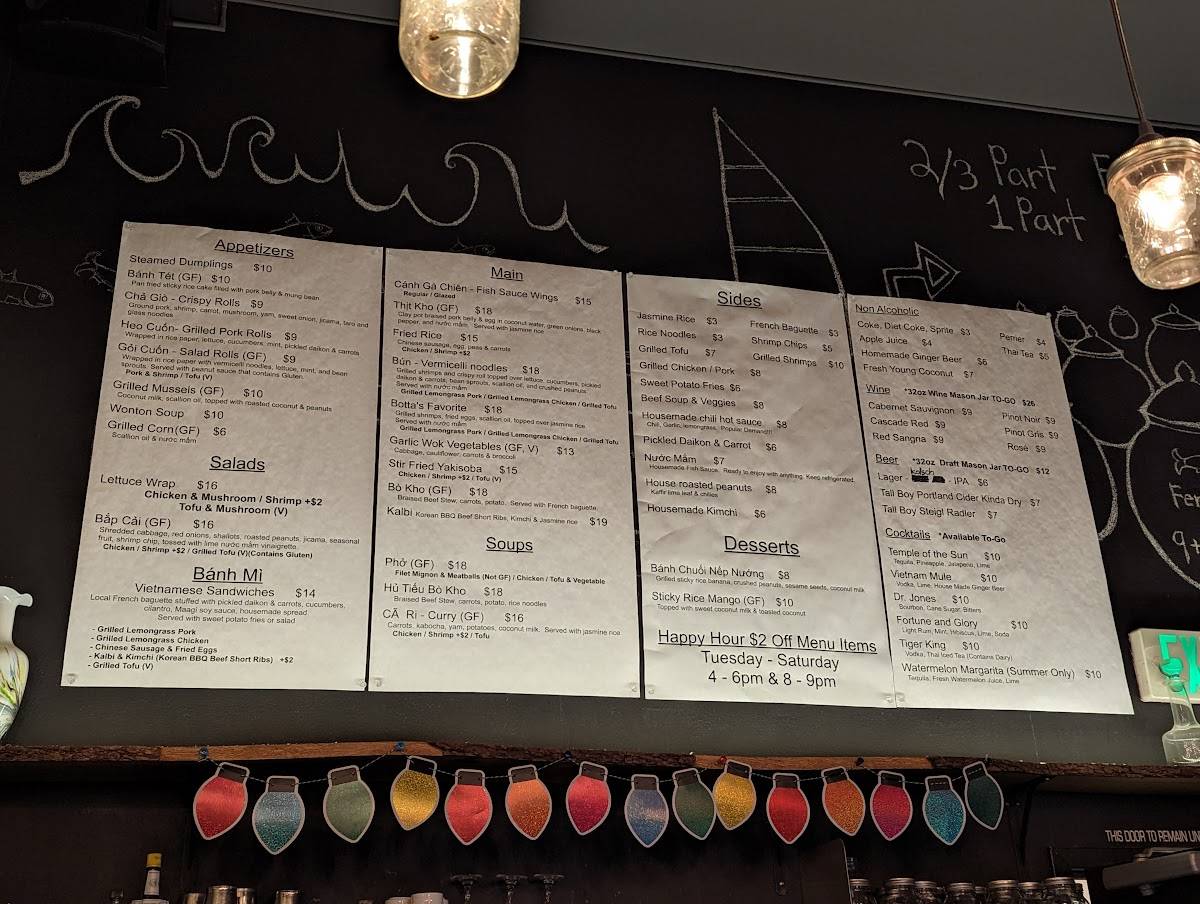 2/3 Part
1 Part
Appetizers
Steamed Dumplings $10
Bánh Tét (GF) $10
Pan fried sticky rice cake filled with pork belly & mung bean
Chả Giò - Crispy Rolls $9
Ground pork, shrimp, carrot, mushroom, yam, sweet onion, jicama, taro and
glass noodles
Heo Cuốn- Grilled Pork Rolls $9
Wrapped in rice paper, lettuce, cucumbers, mint, pickled daikon & carrots
Gỏi Cuốn - Salad Rolls (GF) $9
Wrapped in rice paper with vermicelli noodles, lettuce, mint, and bean
sprouts. Served with peanut sauce that contains Gluten.
Pork & Shrimp / Tofu (V)
Grilled Mussels (GF) $10
Coconut milk, scallion oil, topped with roasted coconut & peanuts
Wonton Soup $10
Grilled Corn(GF) $6
Scallion oil & nước mắm
Salads
Lettuce Wrap $16
Chicken & Mushroom / Shrimp +$2
Tofu & Mushroom (V)
Bắp Cải (GF) $16
Shredded cabbage, red onions, shallots, roasted peanuts, jicama, seasonal
fruit, shrimp chip, tossed with lime nước mắm vinaigrette.
Chicken / Shrimp +$2 / Grilled Tofu (V)(Contains Gluten)
Bánh Mì
Vietnamese Sandwiches $14
Local French baguette stuffed with pickled daikon & carrots, cucumbers,
cilantro, Maagi soy sauce, housemade spread
Served with sweet potato fries or salad
- Grilled Lemongrass Pork
- Grilled Lemongrass Chicken
- Chinese Sausage & Fried Eggs
- Kalbi & Kimchi (Korean BBQ Beef Short Ribs) +$2
- Grilled Tofu (V)
Main
Cánh Gà Chiên - Fish Sauce Wings $15
Regular / Glazed
Thịt Kho (GF) $18
Clay pot braised pork belly & egg in coconut water, green onions, black
pepper, and nước mắm. Served with jasmine rice
Fried Rice $15
Chinese sausage, egg, peas & carrots
Chicken / Shrimp +$2
Bún - Vermicelli noodles $18
Grilled shrimps and crispy roll topped over lettuce, cucumbers, pickled
daikon & carrots, bean sprouts, scallion oil, and crushed peanuts.
Served with nước mắm
Grilled Lemongrass Pork / Grilled Lemongrass Chicken / Grilled Tofu
Botta's Favorite $18
Grilled shrimps, fried eggs, scallion oil, topped over jasmine rice
Served with nước mắm
Grilled Lemongrass Pork / Grilled Lemongrass Chicken / Grilled Tofu
Garlic Wok Vegetables (GF, V) $13
Cabbage, cauliflower, carrots & broccoli
Stir Fried Yakisoba $15
Chicken / Shrimp +$2 / Tofu (V)
Bò Kho (GF) $18
Braised Beef Stew, carrots, potato. Served with French baguette.
Kalbi Korean BBQ Beef Short Ribs, Kimchi & Jasmine rice $19
Soups
Phở (GF) $18
Filet Mignon & Meatballs (Not GF) / Chicken / Tofu & Vegetable
Hủ Tiếu Bò Kho $18
Braised Beef Stew, carrots, potato, rice noodles
CÃ Ri - Curry (GF) $16
Carrots, kabocha, yam, potatoes, coconut milk. Served with jasmine rice
Chicken / Shrimp +$2 / Tofu
Sides
Jasmine Rice $3
Rice Noodles $3
Grilled Tofu $7
Grilled Chicken / Pork $8
Sweet Potato Fries $6
Beef Soup & Veggies $8
Housemade chili hot sauce $8
Chili, Garlic, lemongrass, Popular Demand!!
Pickled Daikon & Carrot $6
Nước Mắm $7
Housemade Fish Sauce. Ready to enjoy with anything. Keep refrigerated.
House roasted peanuts $8
Kaffir lime leaf & chilies
Housemade Kimchi $6
French Baguette $3
Shrimp Chips $5
Grilled Shrimps $10
Desserts
Bánh Chuối Nếp Nướng $8
Grilled sticky rice banana, crushed peanuts, sesame seeds, coconut milk
Sticky Rice Mango (GF) $10
Topped with sweet coconut milk & toasted coconut
Happy Hour $2 Off Menu Items
Tuesday - Saturday
4 - 6pm & 8 - 9pm
Non Alcoholic
Coke, Diet Coke, Sprite $3
Apple Juice $4
Homemade Ginger Beer $6
Fresh Young Coconut $7
Perrier $4
Thai Tea $5
Wine *32oz Wine Mason Jar TO-GO $26
Cabernet Sauvignon $9
Cascade Red $9
Red Sangria $9
Pinot Noir $9
Pinot Gris $9
Rosé $9
Beer *32oz Draft Mason Jar TO-GO $12
Lager - kolsch - IPA $6
Tall Boy Portland Cider Kinda Dry $7
Tall Boy Steigl Radler $7
Cocktails *Available To-Go
Temple of the Sun $10
Tequila, Pineapple, Jalapeno, Lime
Vietnam Mule $10
Vodka, Lime, House Made Ginger Beer
Dr. Jones $10
Bourbon, Cane Sugar, Bitters
Fortune and Glory $10
Light Rum, Mint, Hibiscus, Lime, Soda
Tiger King $10
Vodka, Thai Iced Tea (Contains Dairy)
Watermelon Margarita (Summer Only) $10
Tequila, Fresh Watermelon Juice, Lime
EX
THIS DOOR TO REMAIN UN